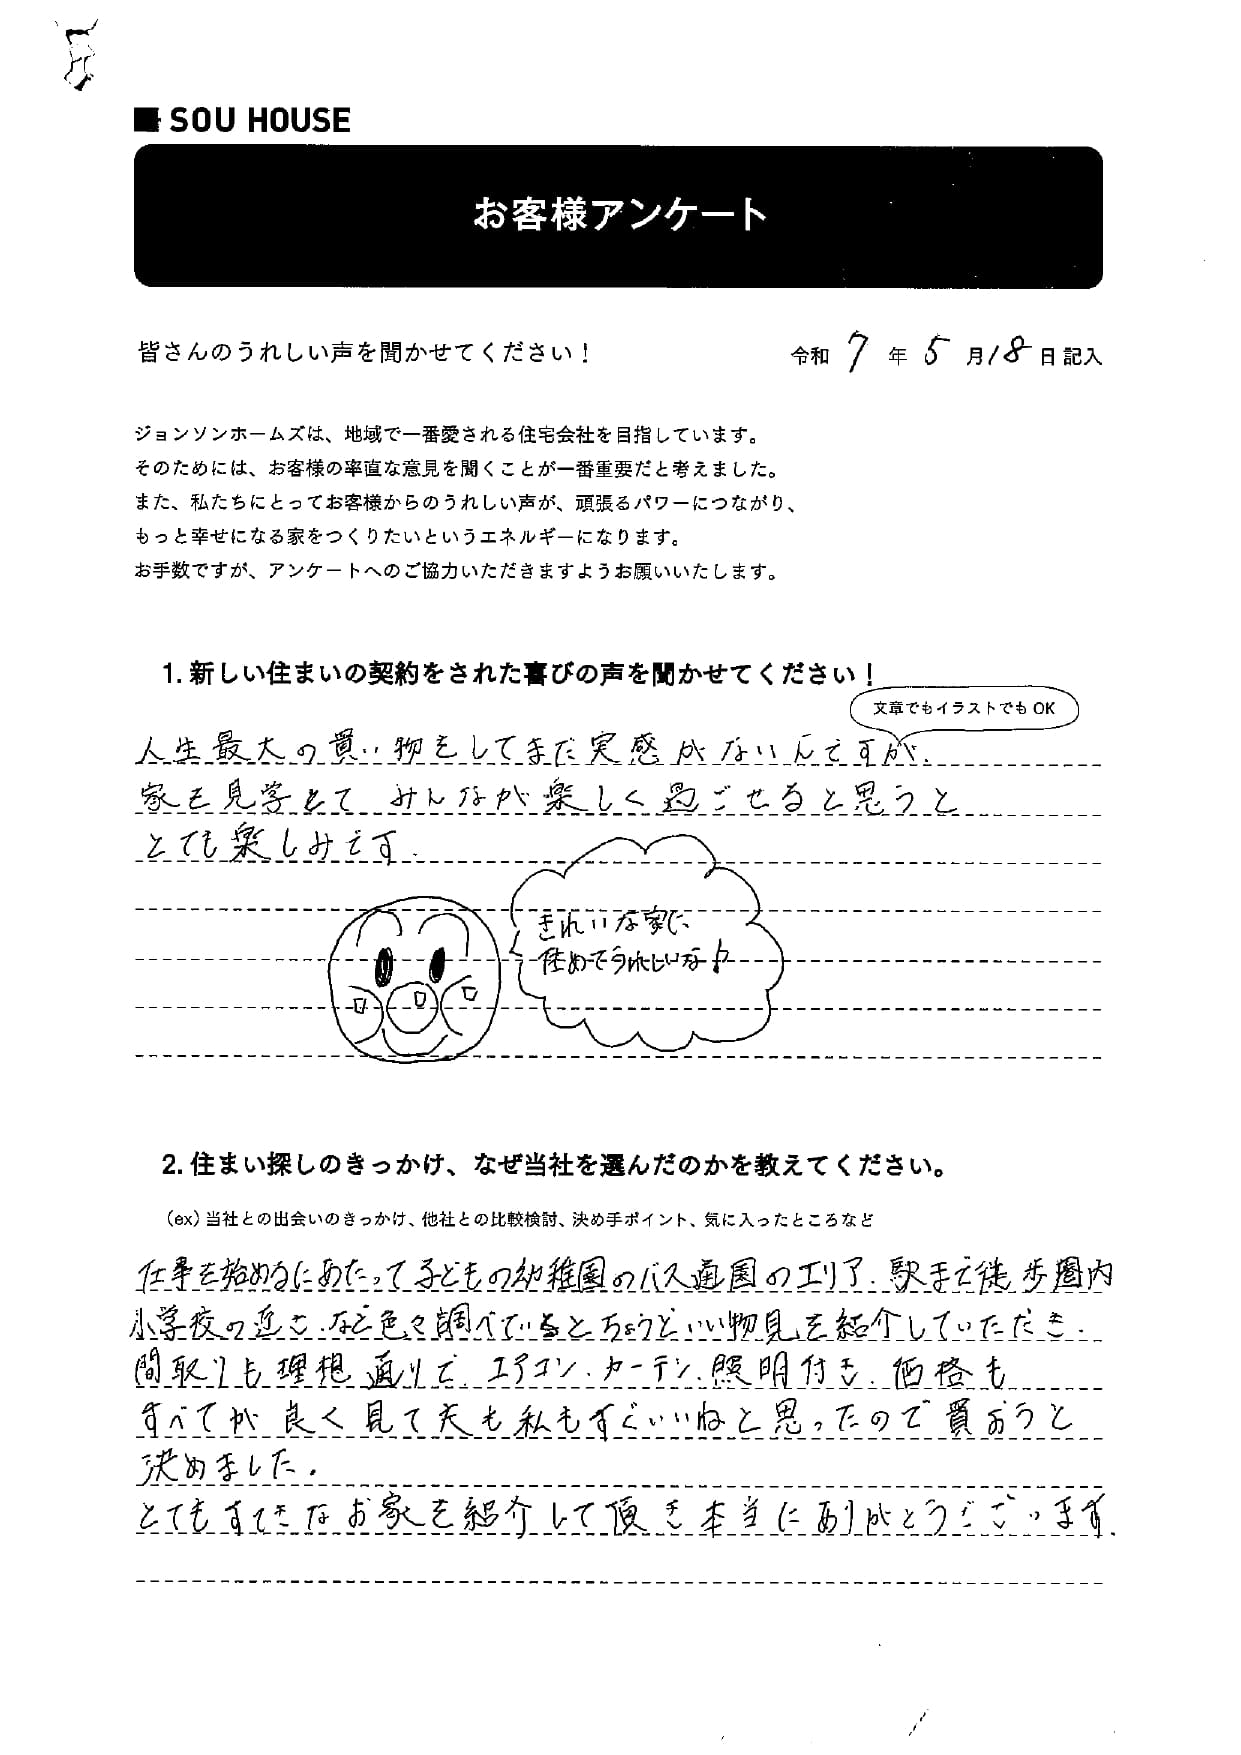 SOU HOUSE
お客様アンケート
皆さんのうれしい声を聞かせてください！
令和 7 年 5 月 18 日 記入
ジョンソンホームズは、地域で一番愛される住宅会社を目指しています。
そのためには、お客様の率直な意見を聞くことが一番重要だと考えました。
また、私たちにとってお客様からのうれしい声が、頑張るパワーにつながり、
もっと幸せになる家をつくりたいというエネルギーになります。
お手数ですが、アンケートへのご協力いただきますようお願いいたします。
1. 新しい住まいの契約をされた喜びの声を聞かせてください！
文章でもイラストでも OK
人生最大の買い物をしてまだ実感がないんですが、
家を見学して みんなが楽しく過ごせると思うと
とても楽しみです.
きれいな家に、
住めてうれしいな♪
2. 住まい探しのきっかけ、なぜ当社を選んだのかを教えてください。
（ex）当社との出会いのきっかけ、他社との比較検討、決め手ポイント、気に入ったところなど
仕事を始めるにあたって子どもの幼稚園のバス通園のエリア、駅まで徒歩圏内
小学校の近さ、など色々調べているとちょうどいい物見を紹介していただき、
間取りも理想通りで、エアコン、カーテン、照明付き、価格も
すべてが良く見て夫も私もすぐいいねと思ったので買おうと
決めました。
とてもすてきなお家を紹介して頂き本当にありがとうございます.